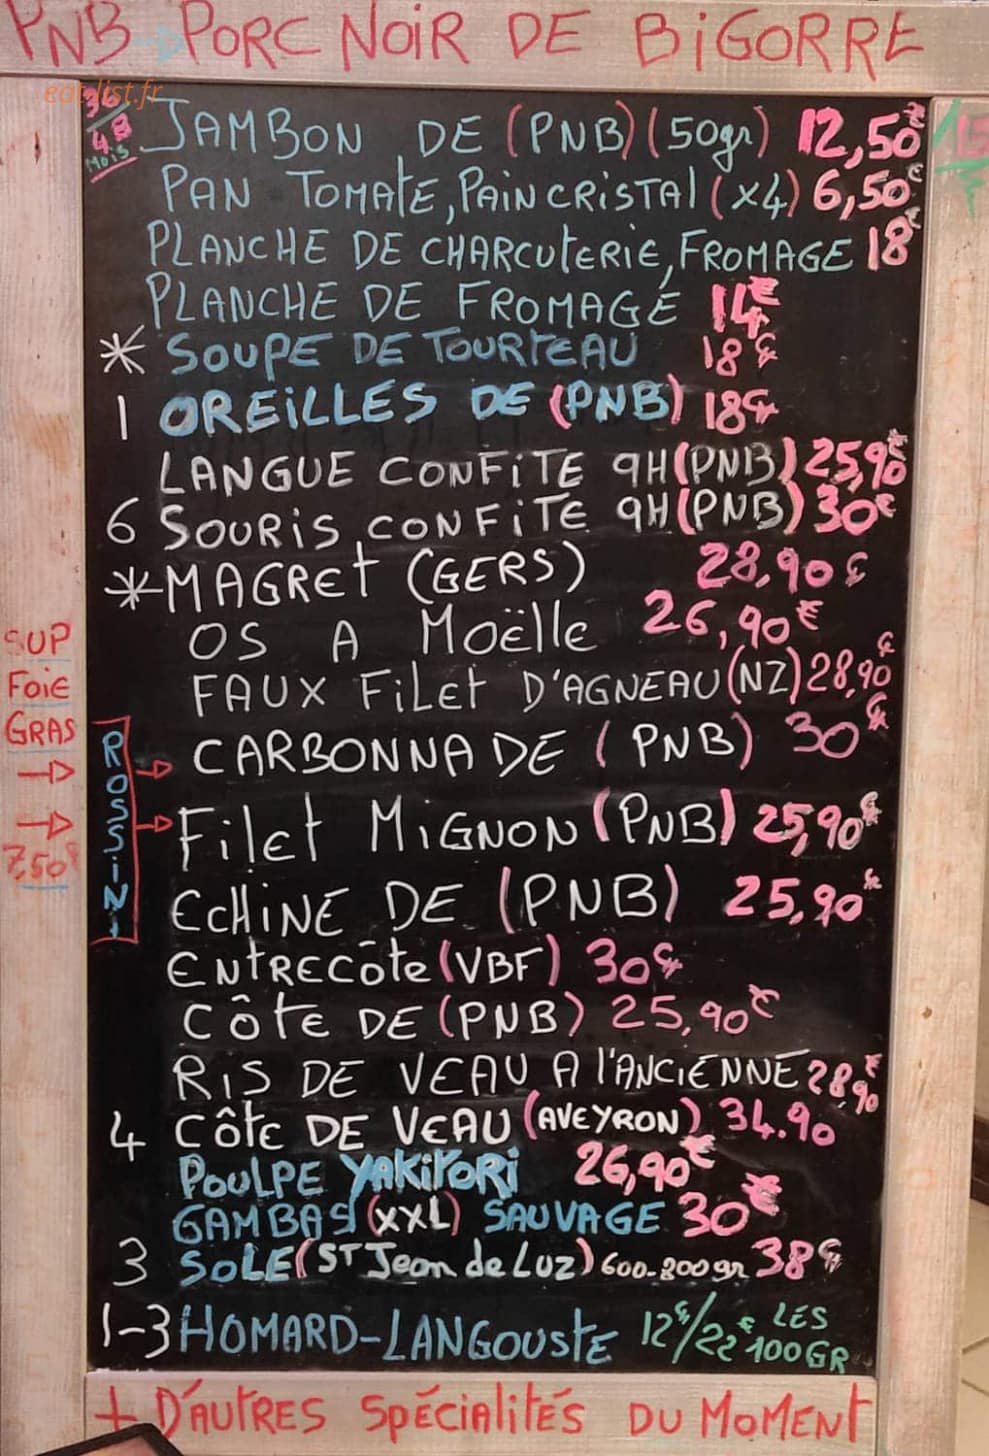 PNB → PORC NOIR DE BIGORRE
eat-list.fr
36/48 MOIS
JAMBON DE (PNB) (50gr) 12,50€
PAN TOMATE, PAIN CRISTAL (x4) 6,50€
PLANCHE DE CHARCUTERIE, FROMAGE 18€
PLANCHE DE FROMAGE 14€
* SOUPE DE TOURTEAU 18€
1 OREILLES DE (PNB) 18€
LANGUE CONFITE 9H (PNB) 25,90€
6 SOURIS CONFITE 9H (PNB) 30€
* MAGRET (GERS) 28,90€
OS A MOËLLE 26,90€
FAUX FILET D'AGNEAU (NZ) 28,90€
SUP
FOIE
GRAS
→
→
7,50€
ROSSINI
→ CARBONNADE (PNB) 30€
→ FILET MIGNON (PNB) 25,90€
ECHINE DE (PNB) 25,90€
ENTRECÔTE (VBF) 30€
CÔTE DE (PNB) 25,90€
RIS DE VEAU A l'ANCIENNE 28,90€
4 CÔTE DE VEAU (AVEYRON) 34.90
POULPE YAKITORI 26,90€
GAMBAS (XXL) SAUVAGE 30€
3 SOLE (ST Jean de Luz) 600-800gr 38€
1-3 HOMARD-LANGOUSTE 12€/22€ LES 100GR
+ D'AUTRES SPÉCIALITÉS DU MOMENT